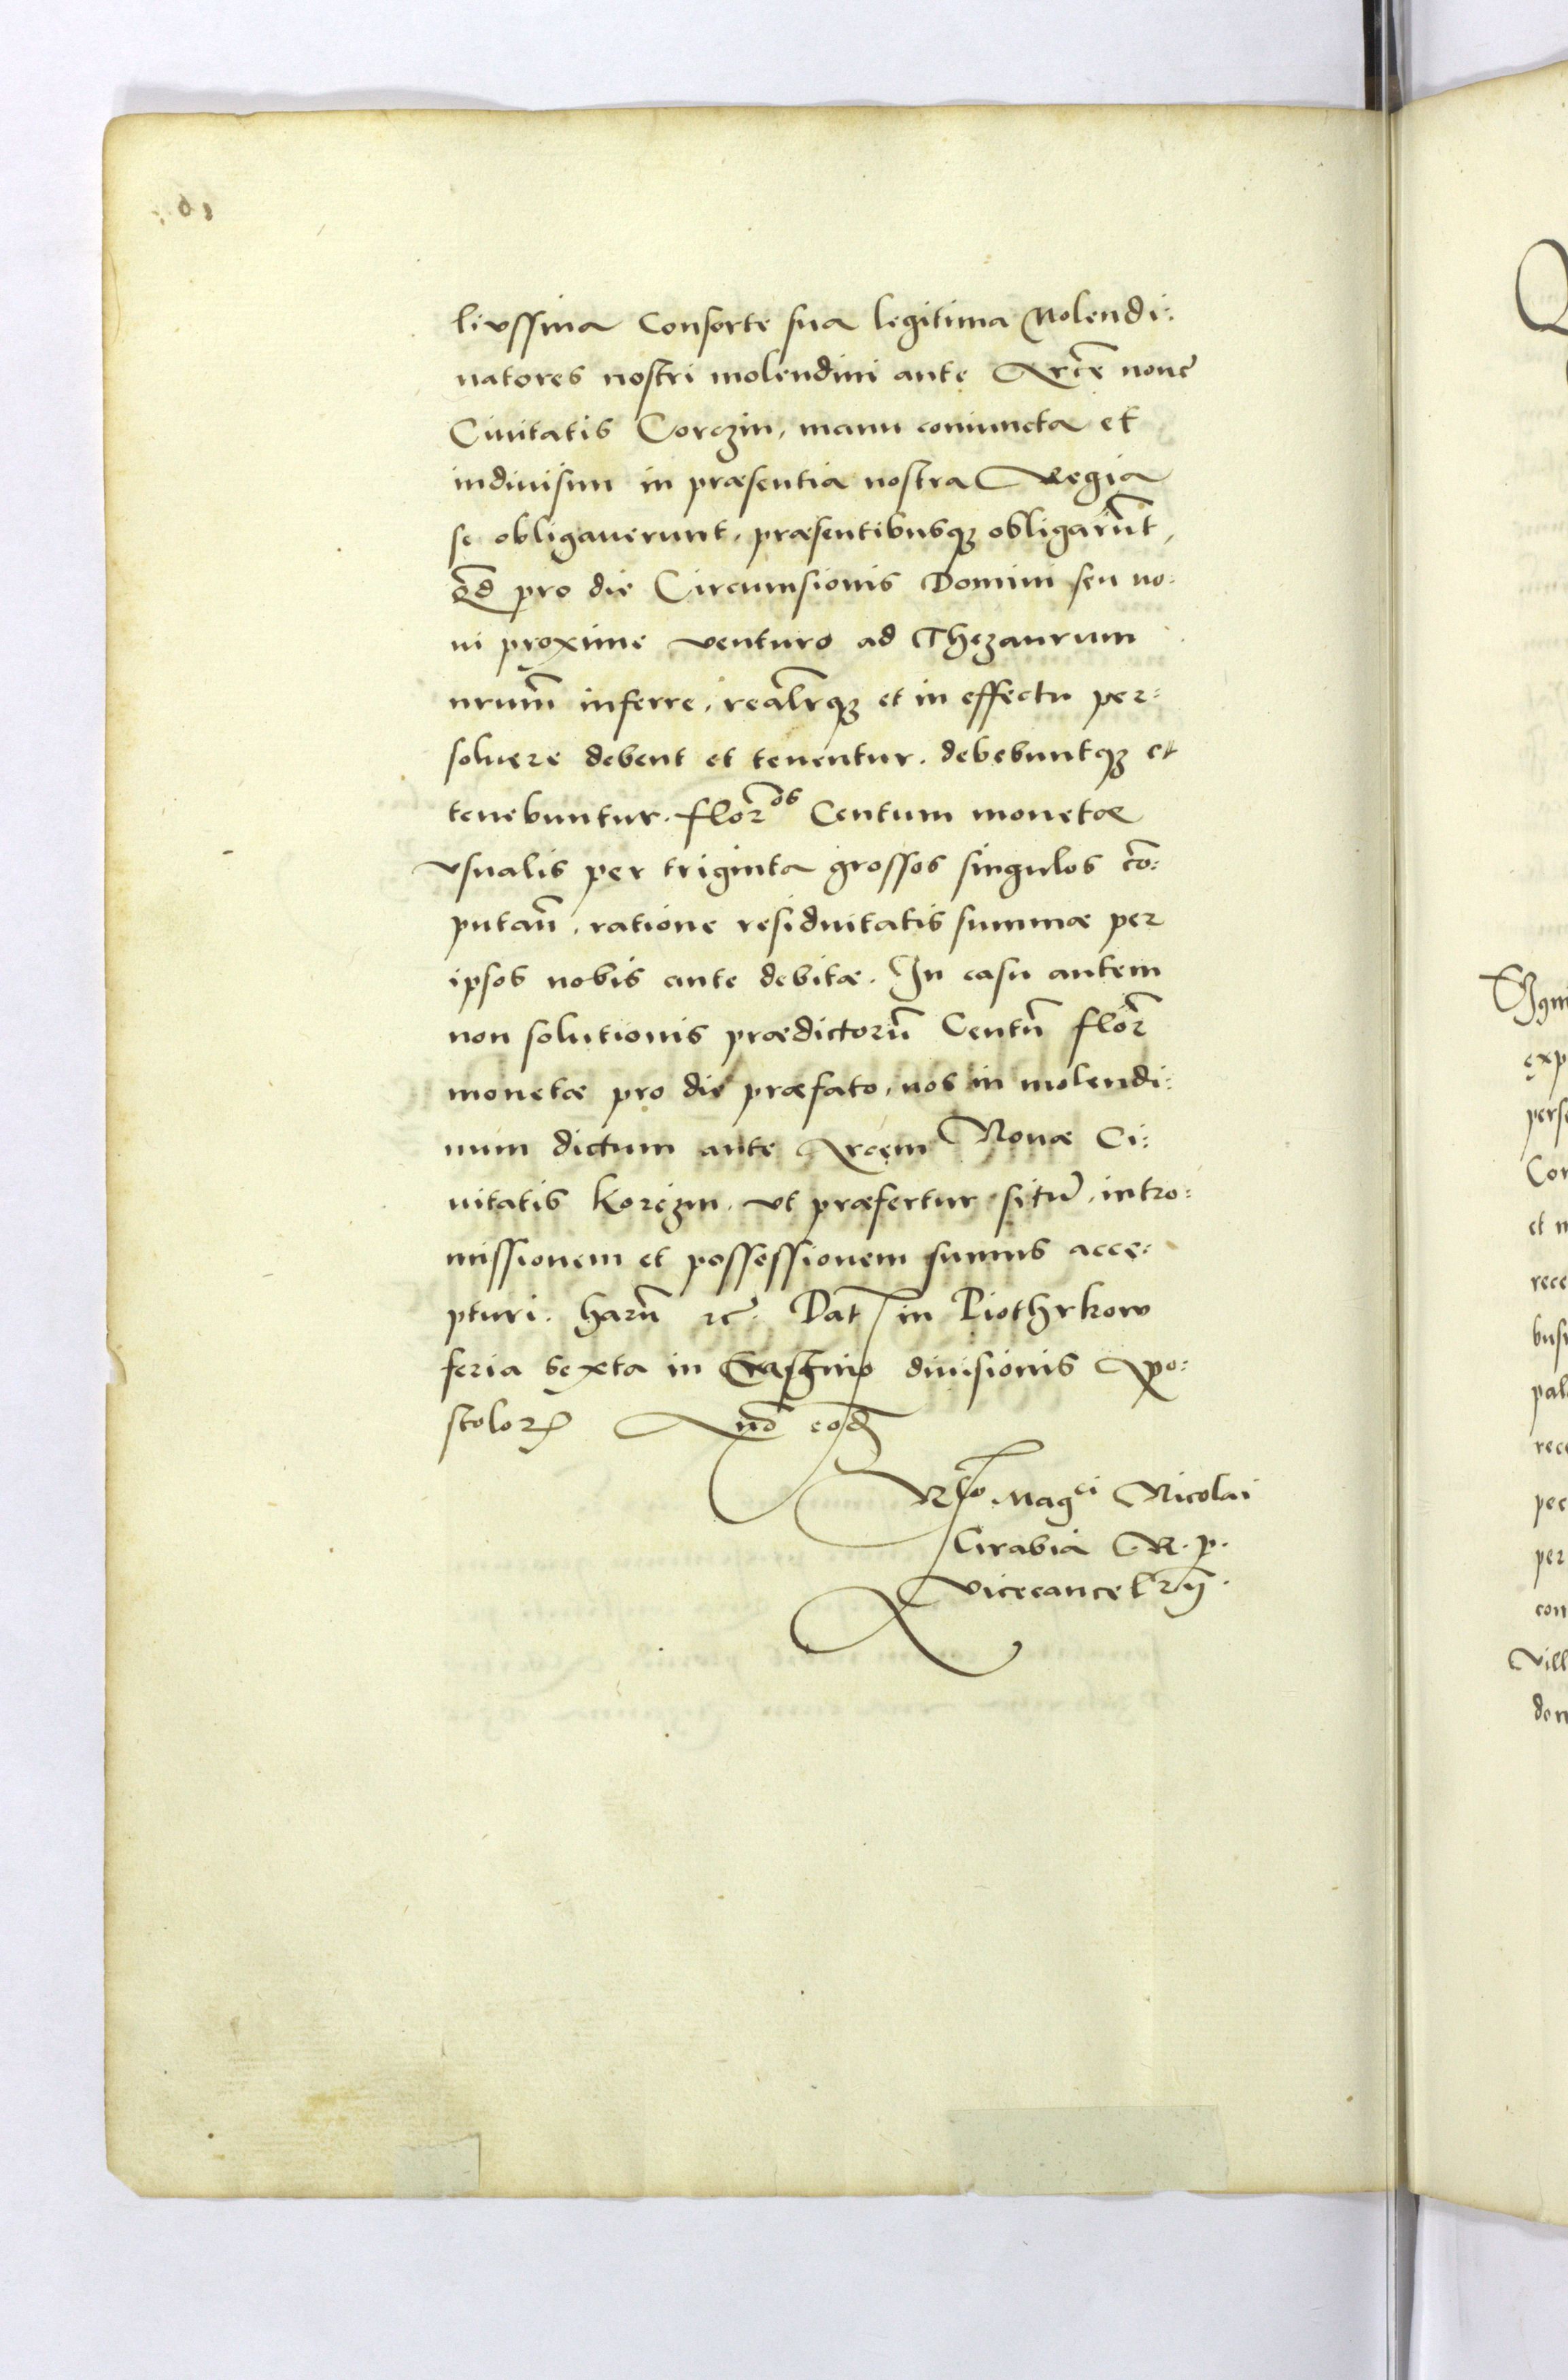 livssina Consorte sua legitima Molendi:
natores nostri molendini ante Arcē nouę
Ciuitatis Corczin, manu coniuncta et
indiuisim in præsentia nostra Regia
se obligauerunt, præsentibusq3 obligarūt,
qđ pro die Circumsionis Domini seu no:
ui proxime venturo ad Thezaurum
nrum̄ inferre, realr̄q3 et in effectu per:
soluere debent et tenentur. debebuntq3 et
tenebuntur. flor̄os Centum monetæ
vsualis per triginta grossos singulos cō:
putan̄, ratione residuitatis summæ per
ipsos nobis ante debitæ. In casu autem
non solutionis prædictorū Centū flor̄
monetæ pro die præfato, nos in molendi:
num dictum ante Arcem Nouæ Ci:
uitatis Korczin, vt præfertur situ̅, intro:
missionem et possessionem sumus acce:
pturi. harū ꝛc̄. Dat̄ in Piothrkow
feria sexta in Crastino diuisionis Apo:
stoloꝝ Añō eod̄
Rlo Magci Nicolai
Grabia R. p.
vicecancelr̄ij.